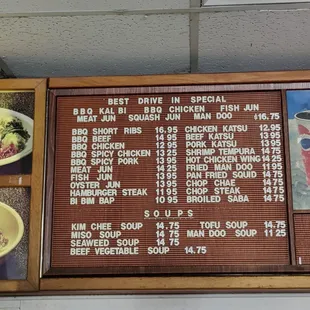 BEST DRIVE IN SPECIAL
BBQ KAL BI BBQ CHICKEN FISH JUN
MEAT JUN SQUASH JUN MAN DOO $16.75
BBQ SHORT RIBS 16.95 CHICKEN KATSU 12.95
BBQ BEEF 14.95 BEEF KATSU 13.95
BBQ CHICKEN 12.95 PORK KATSU 13.95
BBQ SPICY CHICKEN 13.25 SHRIMP TEMPURA 14.75
BBQ SPICY PORK 13.95 HOT CHICKEN WING 14.25
MEAT JUN 14.25 FRIED MAN DOO 11.95
FISH JUN 14.75 PAN FRIED SQUID 14.75
OYSTER JUN 13.95 CHOP CHAE 14.75
HAMBURGER STEAK 11.95 CHOP STEAK 14.75
BI BIM BAP 10.95 BROILED SABA 14.75
SOUPS
KIM CHEE SOUP 14.75 TOFU SOUP 14.75
MISO SOUP 14.75 MAN DOO SOUP 11.25
SEAWEED SOUP 14.75
BEEF VEGETABLE SOUP 14.75